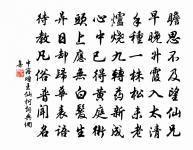 瞻思不及望仙兄
早晚升霞入太清
手種一株松未老
爐燒九轉藥新成
心中已得黃庭術
頭上應無白髮生
异日却歸華表語
待教凡俗普聞名
中寤贈王仙柯
集